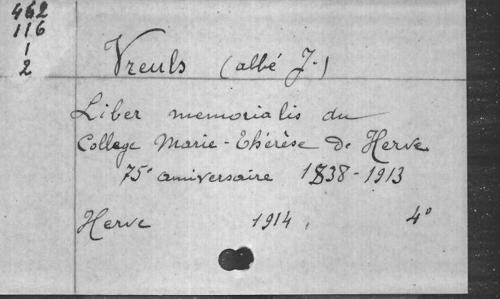 462
116
1
2
Vreuls (abbé J.)
Liber memorialis du
College Marie-Thérèse de Herve
75e anniversaire 1838-1913
Herve 1914, 4°